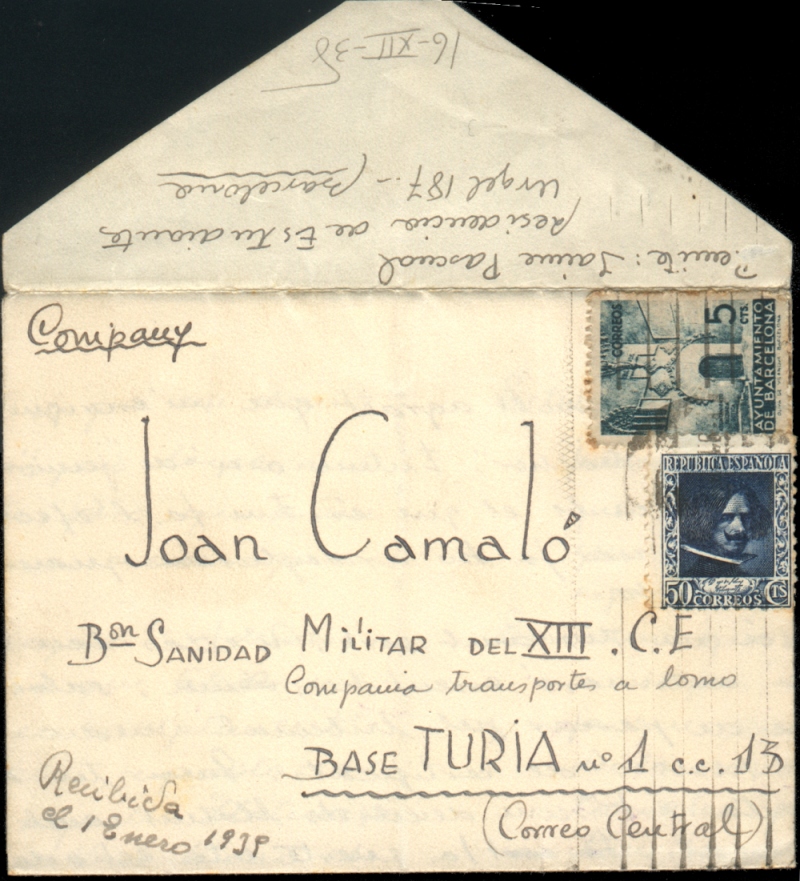 16-XII-38
Remite: Jaime Pascual
Residencia de Estudiantes
Urgel 187.- Barcelona
Company
CORREOS
5 CTS.
AYUNTAMIENTO
DE BARCELONA
REPUBLICA ESPAÑOLA
50 CORREOS CTS
Joan Camaló
Bon SANIDAD MILITAR DEL XIII. C.E
Compania transportes a lomo
BASE TURIA nº 1 c.c. 13
(Correo Central)
Recibida
el 1 Enero 1939